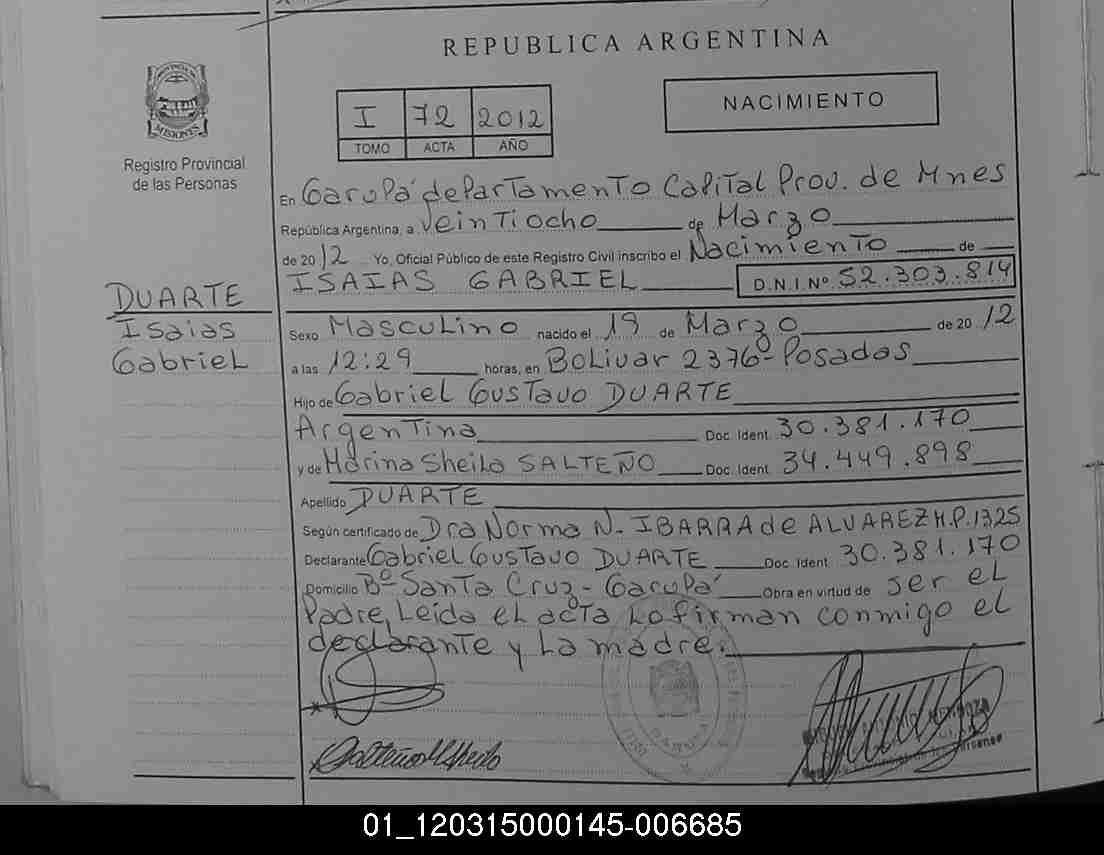 REPUBLICA ARGENTINA
PROVINCIA DE
MISIONES
Registro Provincial
de las Personas
I 72 2012
TOMO ACTA AÑO
NACIMIENTO
En Garupá departamento Capital Prov. de Mnes
República Argentina, a veintiocho de Marzo
de 2012 Yo, Oficial Público de este Registro Civil inscribo el Nacimiento de
ISAIAS GABRIEL D.N.I.Nº 52.303.814
DUARTE
Isaias
Gabriel
Sexo Masculino nacido el 19 de Marzo de 2012
a las 12:29 horas, en Bolivar 2376º Posadas
Hijo de Gabriel Gustavo DUARTE
Argentina Doc. Ident. 30.381.170
y de Marina Sheila SALTEÑO Doc. Ident. 34.449.898
Apellido DUARTE
Según certificado de Dra Norma N. IBARRA de ALVAREZ M.P.1325
Declarante Gabriel Gustavo DUARTE Doc. Ident 30.381.170
Domicilio Bº Santa Cruz - Garupá Obra en virtud de ser el
Padre, Leída el acta La firman conmigo el
declarante y La madre.
GARUPA
MENDOZA
01_120315000145-006685